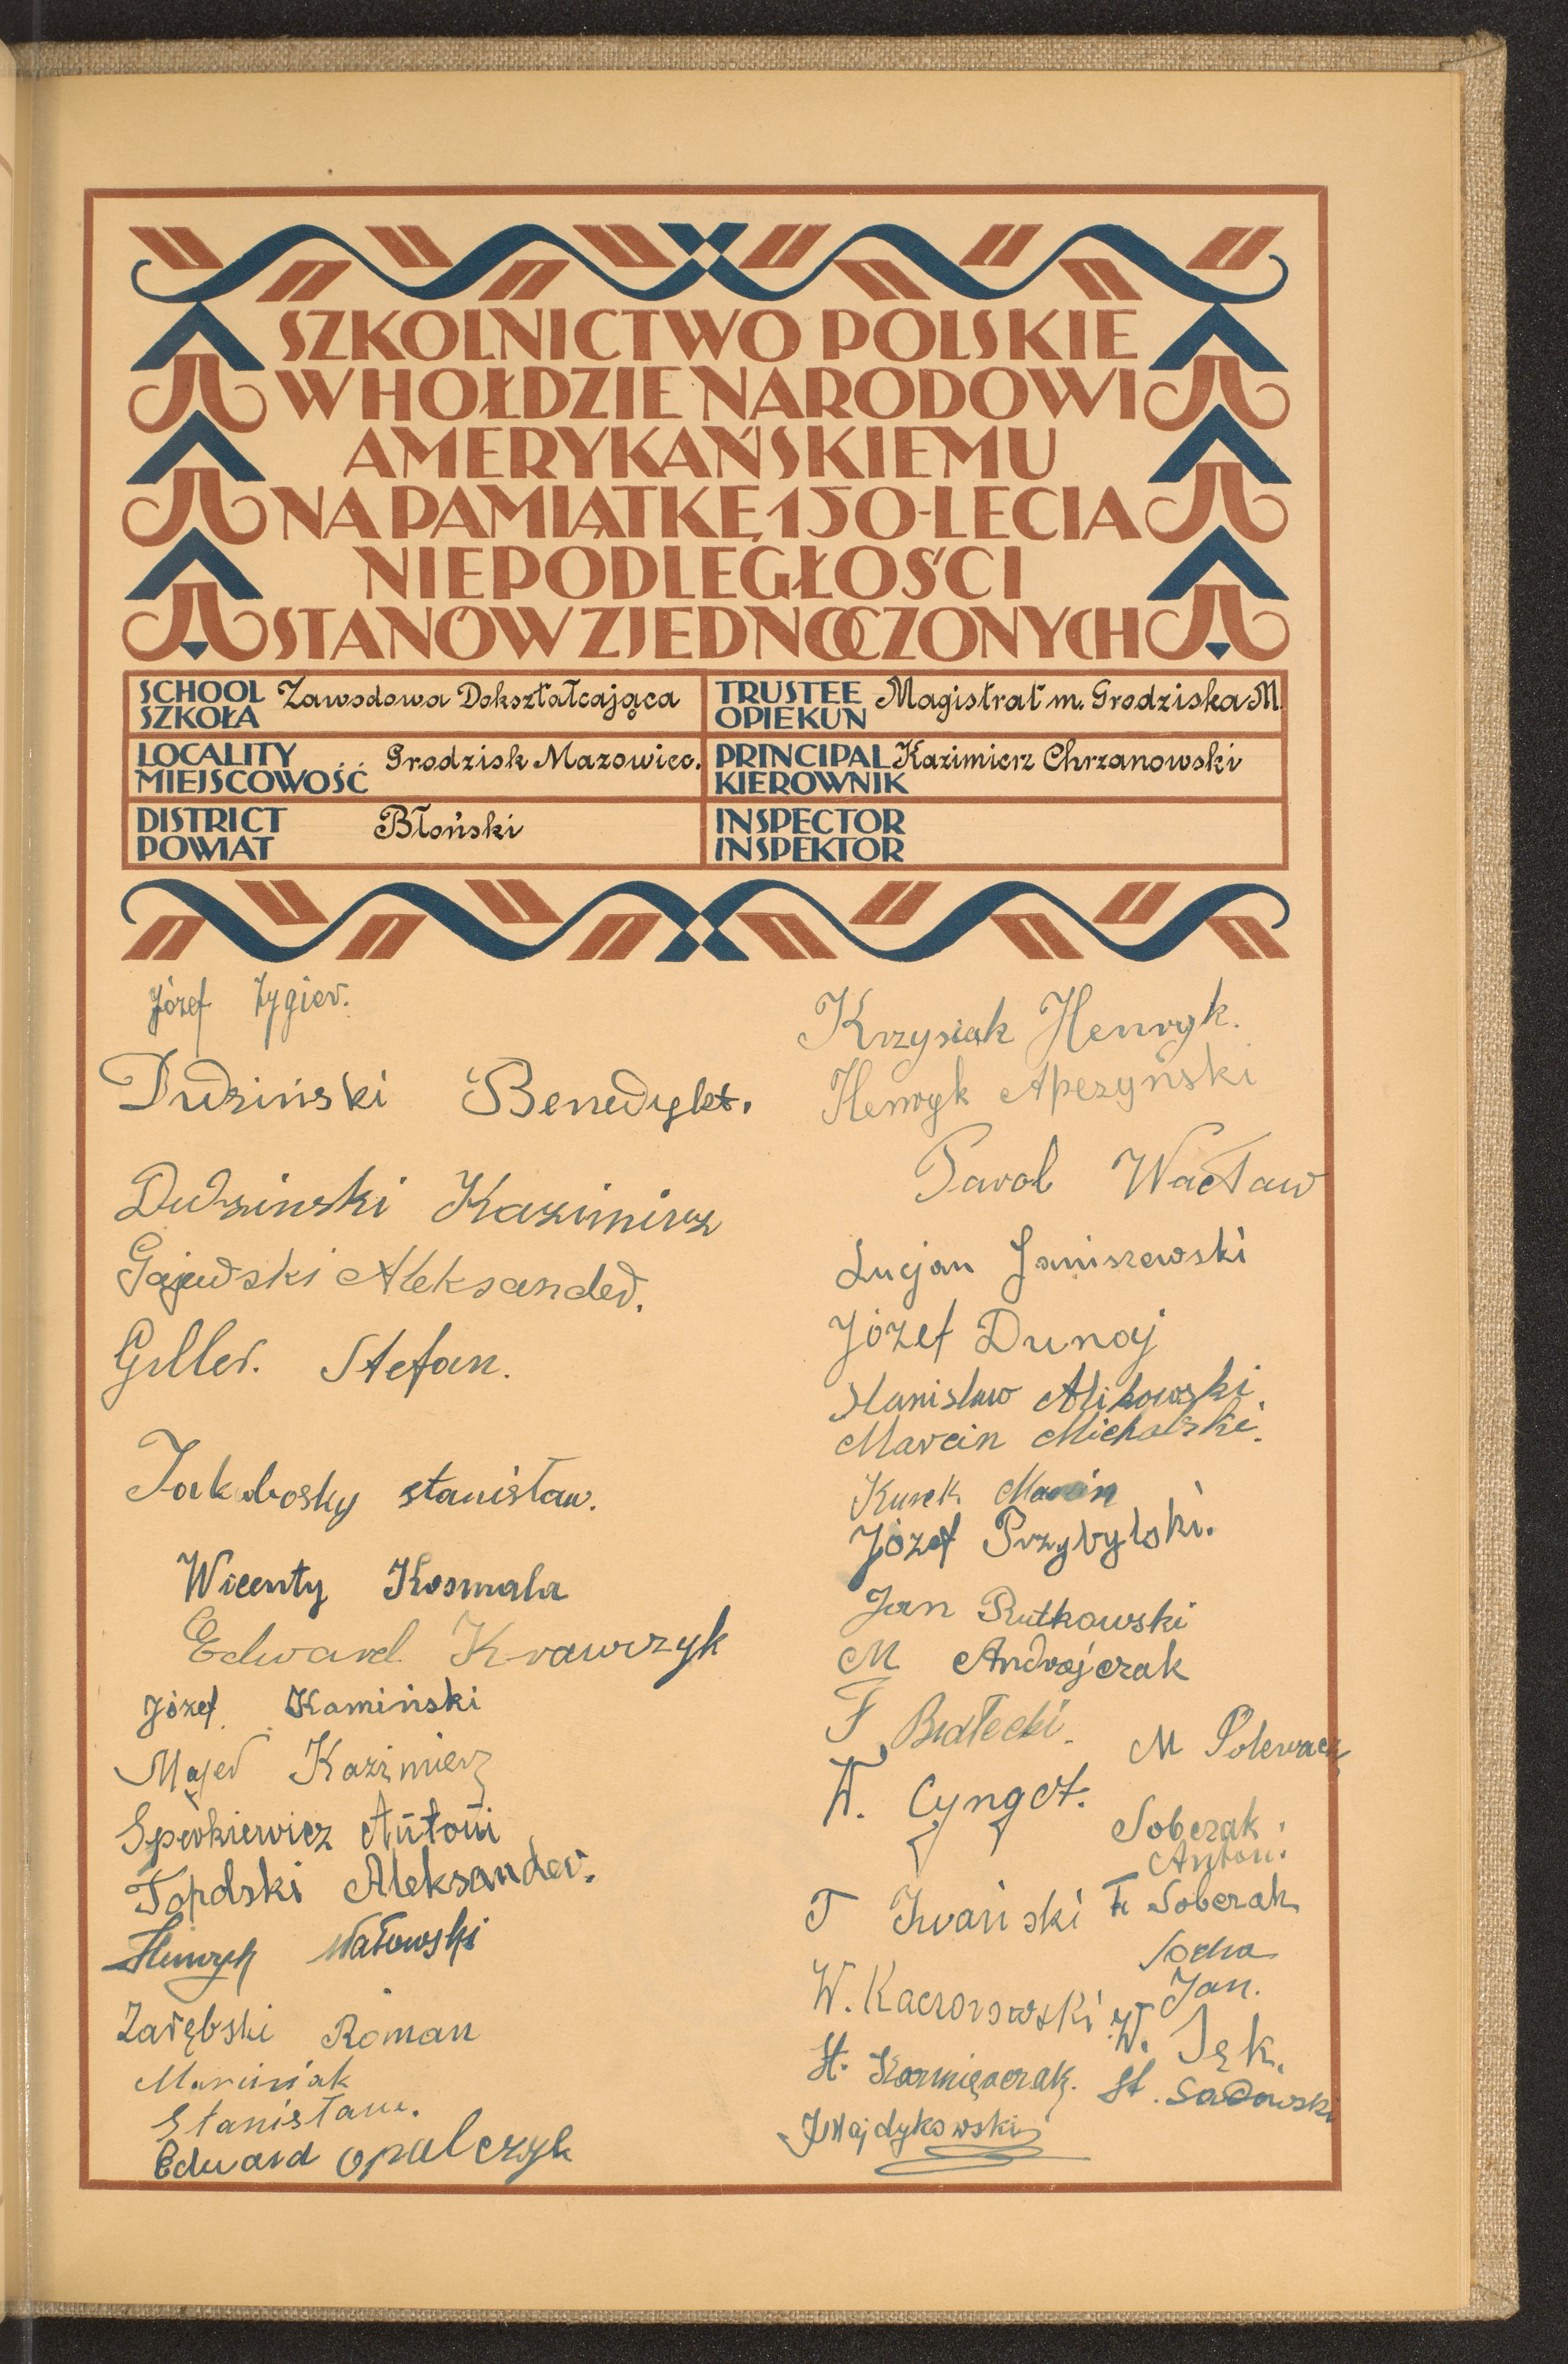 SZKOLNICTWO POLSKIE
W HOŁDZIE NARODOWI
AMERYKAŃSKIEMU
NA PAMIĄTKĘ 150-LECIA
NIEPODLEGŁOŚCI
STANÓW ZJEDNOCZONYCH
SCHOOL SZKOŁA Zawodowa Dokształcająca
TRUSTEE OPIEKUN Magistrat m. Grodziska M.
LOCALITY MIEJSCOWOŚĆ Grodzisk Mazowiec.
PRINCIPAL KIEROWNIK Kazimierz Chrzanowski
DISTRICT POWIAT Błoński
INSPECTOR INSPEKTOR
Józef Zygier.
Dudziński Benedykt.
Dudzinski Kazimirz
Gajewski Aleksander.
Giller. Stefan.
Jakubosky stanisław.
Wicenty Kosmala
Edward Krawczyk
Józef Kamiński
Majer Kazimierz
Sperkiewicz Antoni
Topolski Aleksander.
Henryk Watowski
Zarębski Roman
Marciniak
Stanisław.
Edward Opalczyk
Krzysiak Henryk.
Henryk
Parol Wacław
Lucjan Janiszewski
Józef Dunaj
Stanisław
Marcin Michalski.
Kurek Marcin
Józef Przybylski.
Jan Rutkowski
M Andrzejczak
F. Białecki.
M Polewacz
W. Cyngot.
Soberak
Anton.
T Iwański
Fr Soberak
Socha
Jan.
W. Kaczorowski
W. Sęk.
St. Kazmięrczak.
St. Sadowski
J Majdykowski